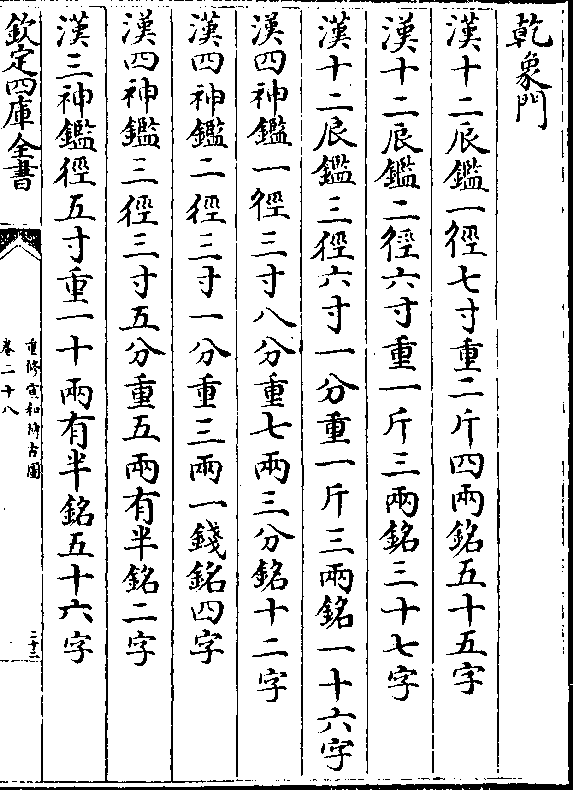 乾象門
漢十二辰鑑一徑七寸重二斤四兩銘五十五字
漢十二辰鑑二徑六寸重一斤三兩銘三十七字
漢十二辰鑑三徑六寸一分重一斤三兩銘一十六字
漢四神鑑一徑三寸八分重七兩三分銘十二字
漢四神鑑二徑三寸一分重三兩一錢銘四字
漢四神鑑三徑三寸五分重五兩有半銘二字
漢三神鑑徑五寸重一十兩有半銘五十六字
欽定四庫全書
重修宣和博古圖
卷二十八
二十二